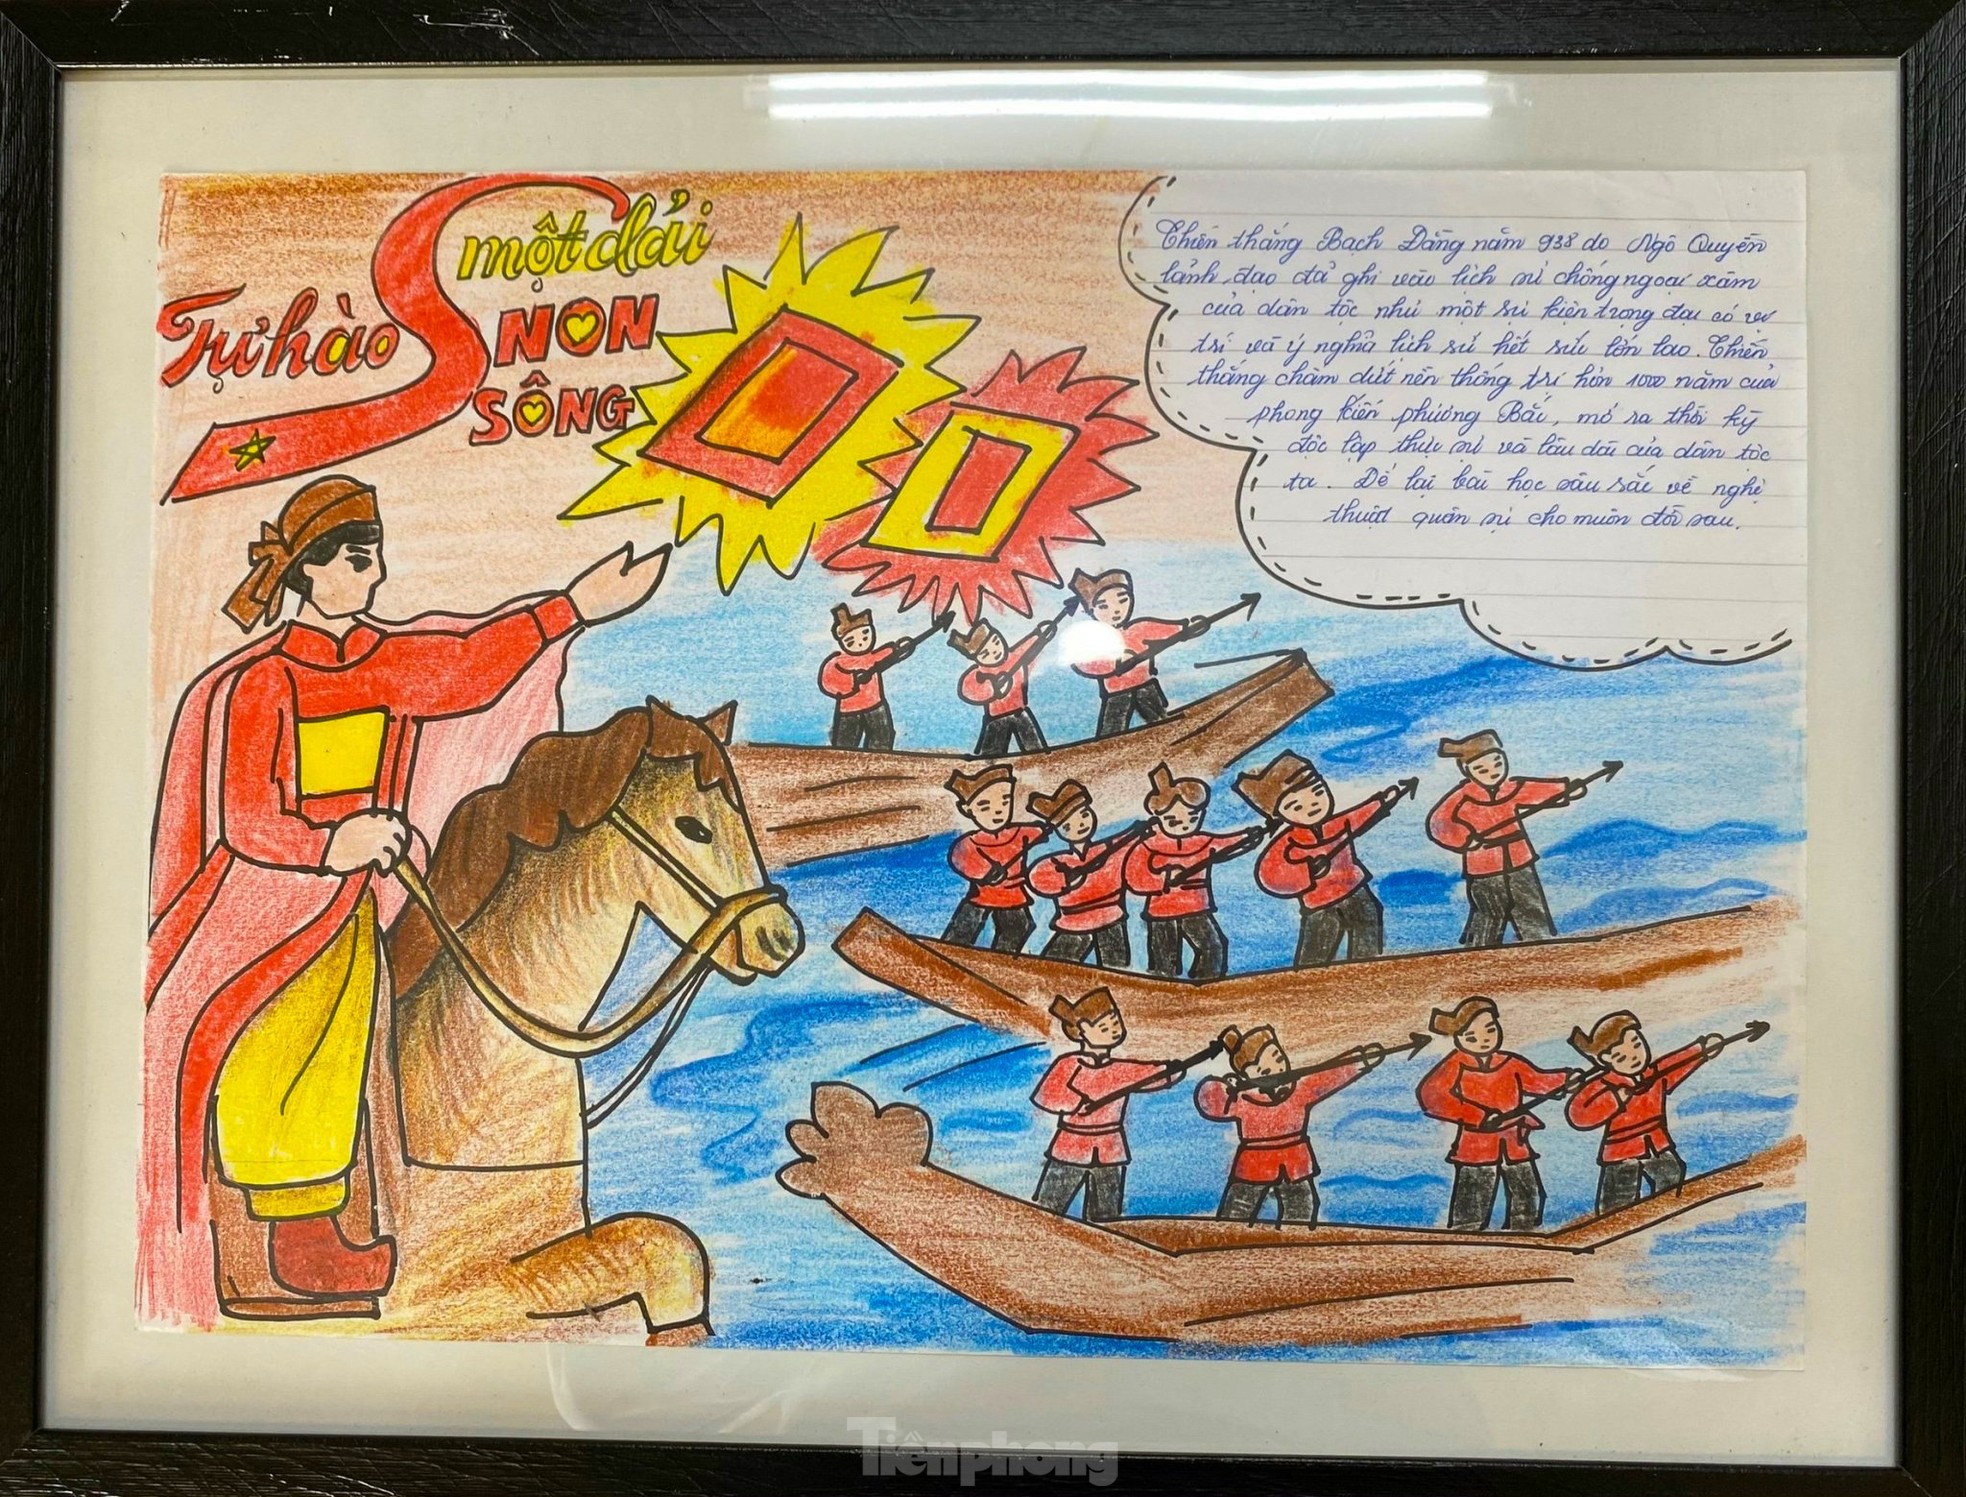 Tự hào
một dải
NON
SÔNG
Chiến thắng Bạch Đằng năm 938 do Ngô Quyền
lảnh đạo đả ghi vào lịch sử chống ngoại xâm
của dân tộc như một sự kiện trọng đại có vị
trí và ý nghĩa lịch sử hết sức lớn lao. Chiến
thắng chấm dứt nền thống trị hơn 1000 năm của
phong kiến phương Bắc, mở ra thời kỳ
độc lập thực sự và lâu dài của dân tộc
ta. Để lại bài học sâu sắc về nghệ
thuật quân sự cho muôn đời sau.
Tiênphong